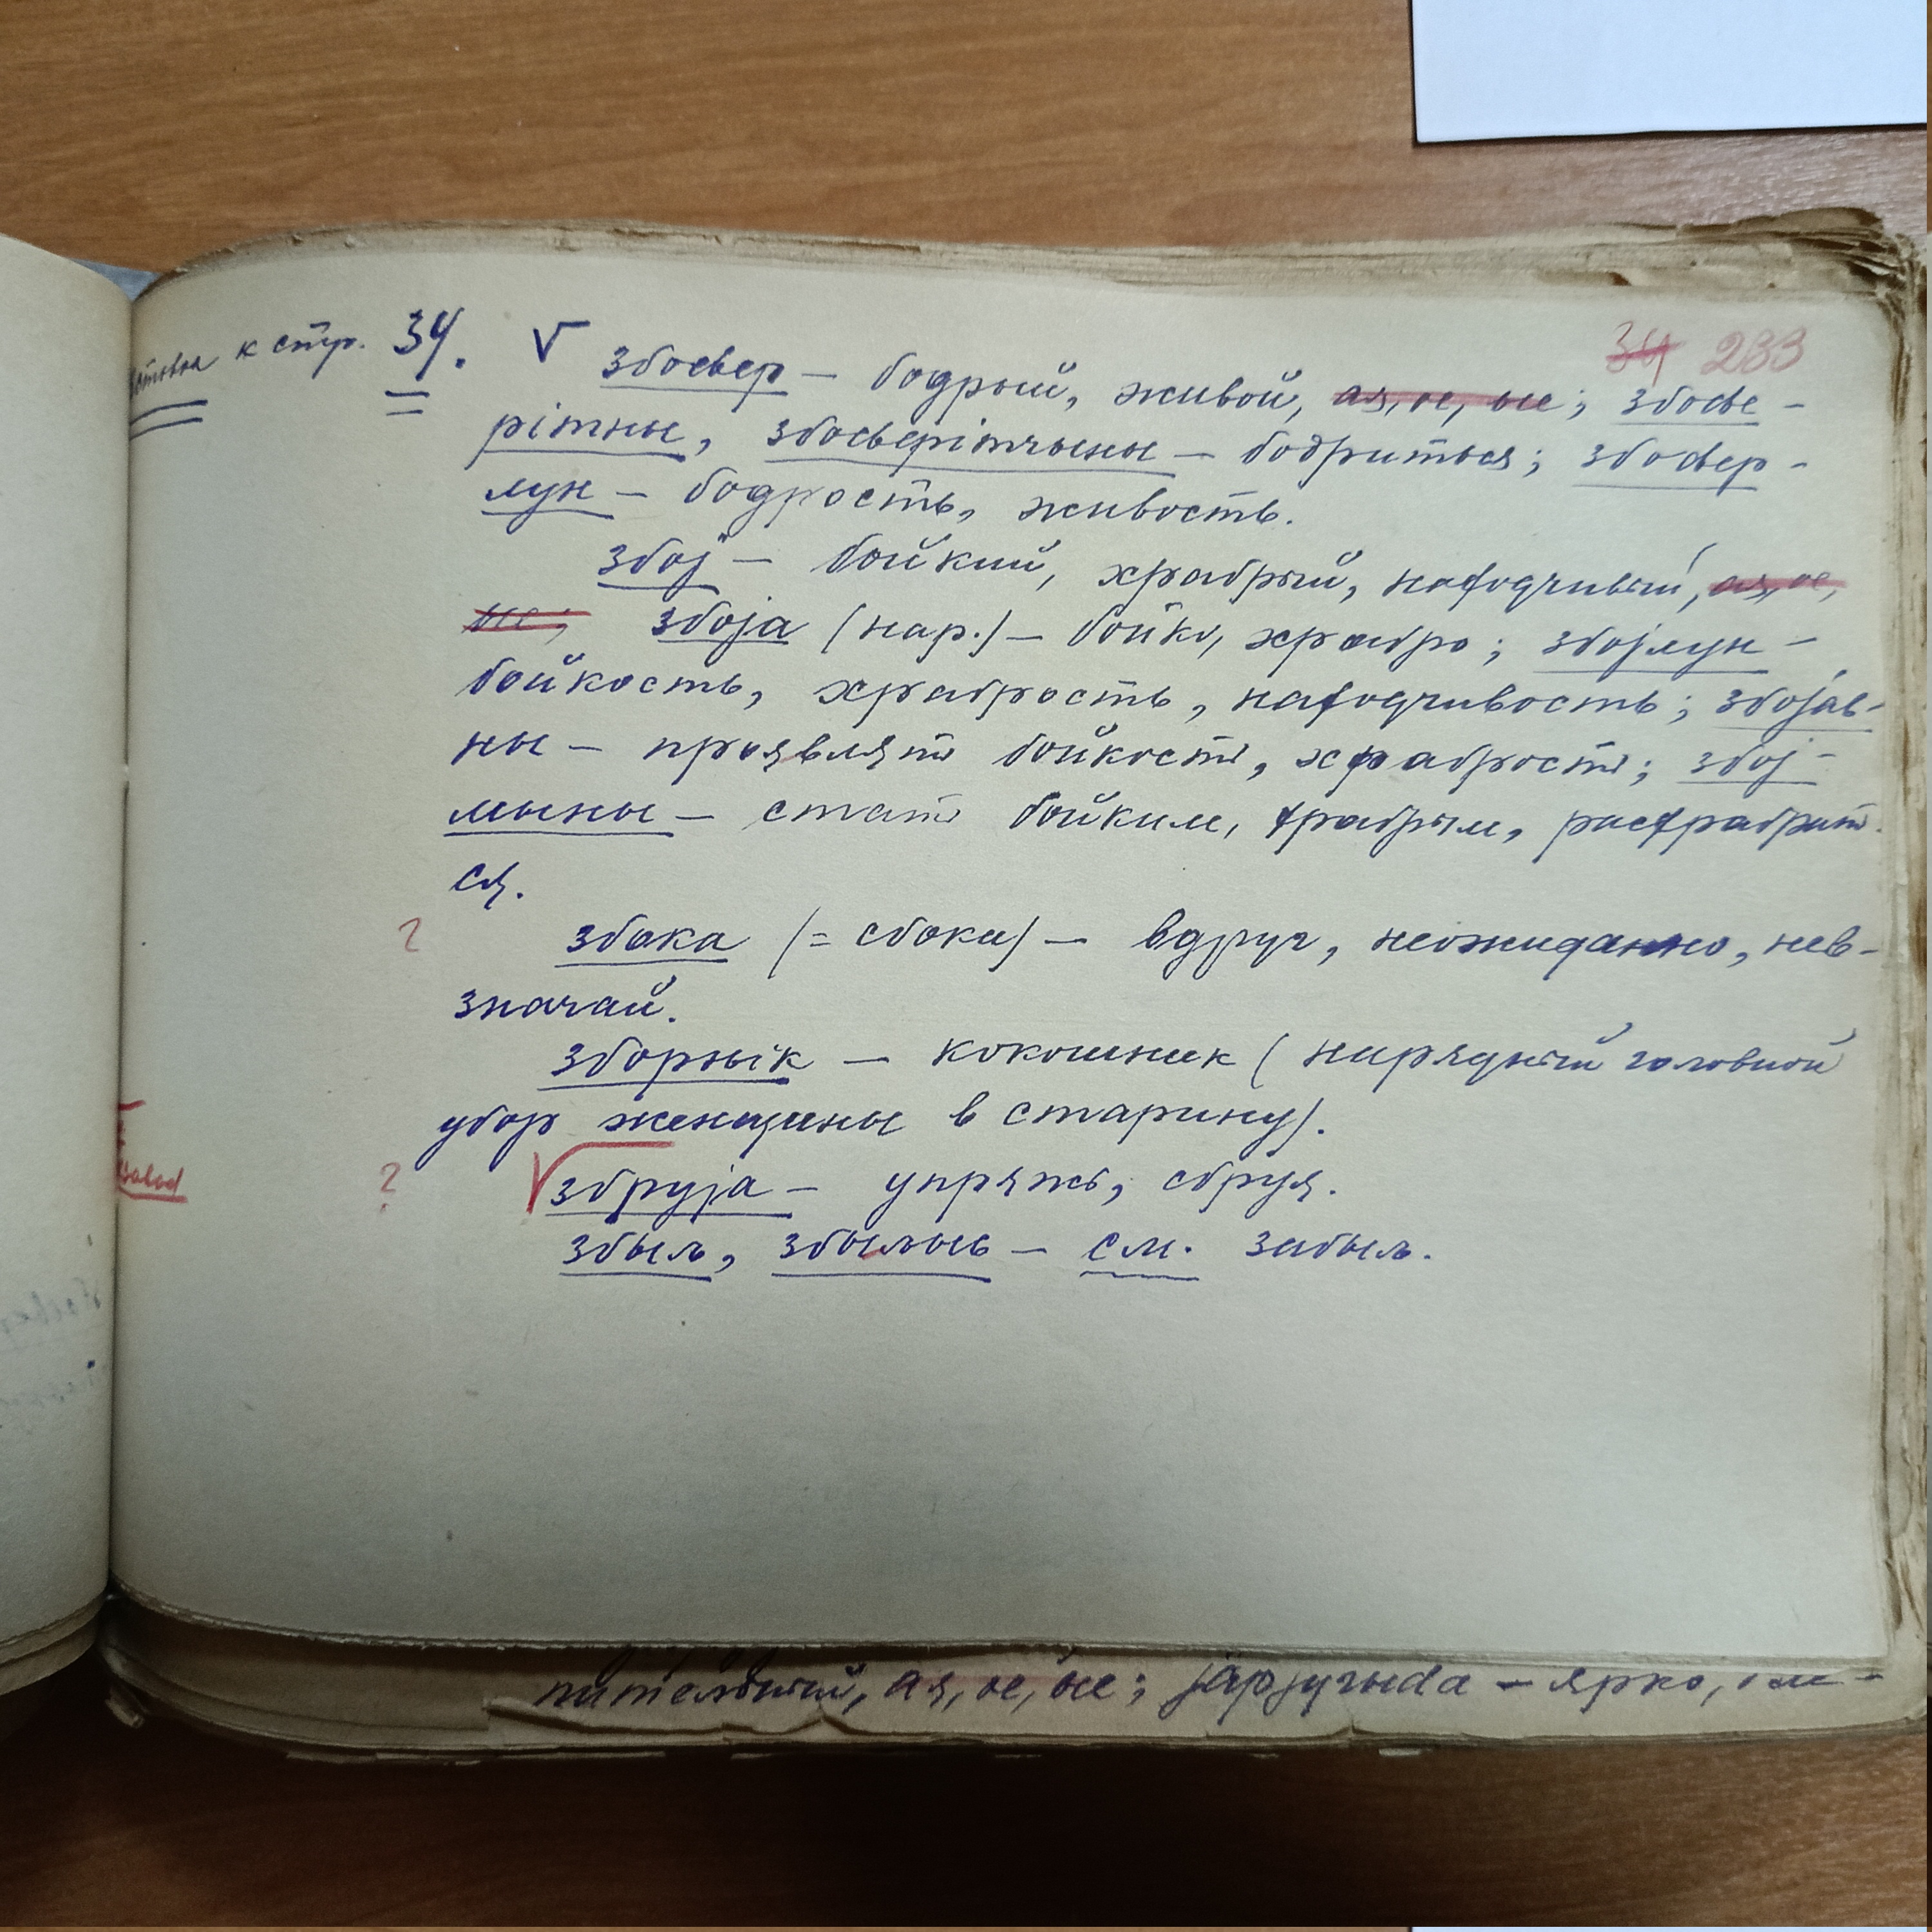 к стр. 34. √ збоевер — бодрый, живой, ая, ое, ые; збоеве-
34 233
рітны, збоеверітчыны — бодриться; збоевер-
лун — бодрость, живость.
збој — бойкий, храбрый, находчивый, ая, ое,
ые; збоја (нар.) — бойко, храбро; збојлун —
бойкость, храбрость, находчивость; збојав-
ны — проявлять бойкость, храбрость; збој-
мыны — стать бойким, храбрым, расхрабрить
ся.
? збока (= сбоку) — вдруг, неожиданно, нев-
значай.
зборнык — кокошник (нарядный головной
убор женщины в старину).
? √ збруја — упряжь, сбруя.
збыль, збылыс — см. забыль.
ая, ое, ые; — ярко,